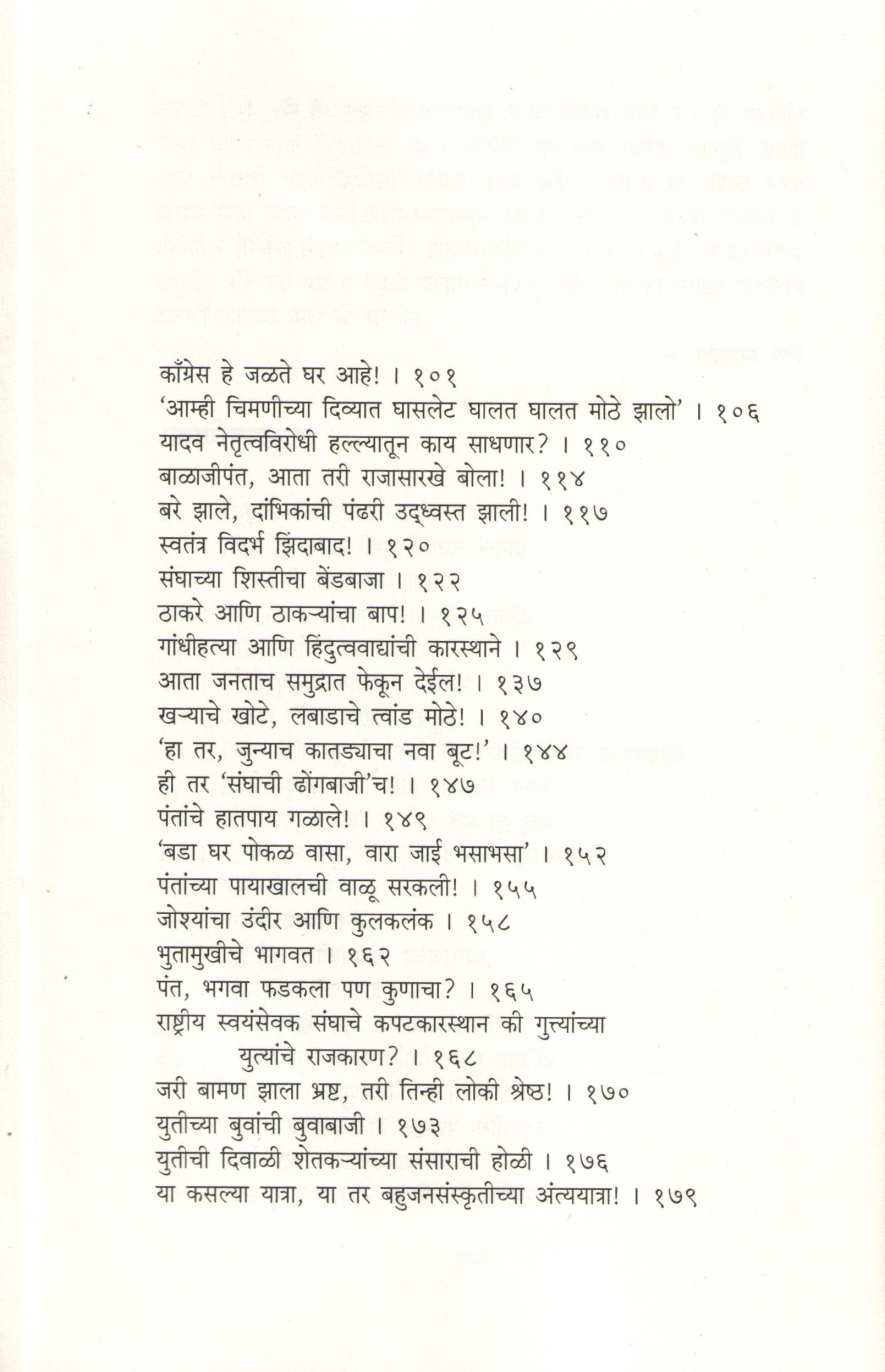 काँग्रेस हे जळते घर आहे! । १०१
‘आम्ही चिमणीच्या दिव्यात घासलेट घालत घालत मोठे झालो’ । १०६
यादव नेतृत्वविरोधी हल्ल्यातून काय साधणार? । ११०
बाळाजीपंत, आता तरी राजासारखे बोला! । ११४
बरे झाले, दांभिकांची पंढरी उद्ध्वस्त झाली! । ११७
स्वतंत्र विदर्भ झिंदाबाद! । १२०
संघाच्या शिस्तीचा बेंडबाजा । १२२
ठाकरे आणि ठाकऱ्यांचा बाप! । १२५
गांधीहत्या आणि हिंदुत्ववाद्यांची कारस्थाने । १२९
आता जनताच समुद्रात फेकून देईल! । १३७
खऱ्याचे खोटे, लबाडाचे त्वांड मोठे! । १४०
‘हा तर, जुन्याच कातड्याचा नवा बूट!’ । १४४
ही तर ‘संघाची ढोंगबाजी’च! । १४७
पंतांचे हातपाय गळाले! । १४९
‘बडा घर पोकळ वासा, वारा जाई भसाभसा’ । १५२
पंतांच्या पायाखालची वाळू सरकली! । १५५
जोश्यांचा उंदीर आणि कुलकलंक । १५८
भुतामुखीचे भागवत । १६२
पंत, भगवा फडकला पण कुणाचा? । १६५
राष्ट्रीय स्वयंसेवक संघाचे कपटकारस्थान की गुत्त्यांच्या
युत्यांचे राजकारण? । १६८
जरी बामण झाला भ्रष्ट, तरी तिन्ही लोकी श्रेष्ठ! । १७०
युतीच्या बुवांची बुवाबाजी । १७३
युतीची दिवाळी शेतकऱ्यांच्या संसाराची होळी । १७६
या कसल्या यात्रा, या तर बहुजनसंस्कृतीच्या अंत्ययात्रा! । १७९